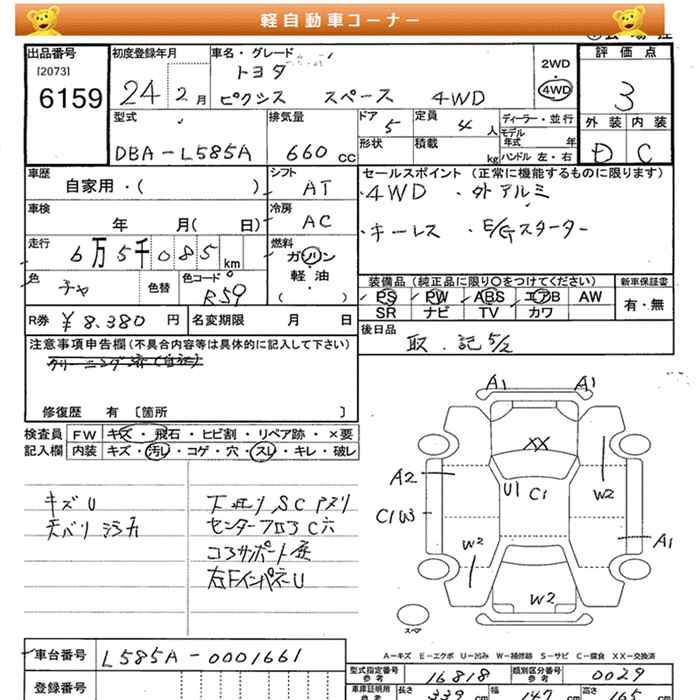 軽自動車コーナー
出品番号 初度登録年月 車名・グレード 評価点
[2073] トヨタ 2WD
6159 24 2月 ピクシス スペース 4WD 4WD 3
型式 排気量 ドア 定員 ディーラー・並行 外装 内装
DBA-L585A 660 cc 5 4 人 モデル年式 年 D C
形状 積載 kg ハンドル 左・右
車歴 シフト セールスポイント (正常に機能するものに限ります)
自家用・( ) AT ・4WD ・外アルミ
車検 冷房
年 月(日) AC ・キーレス E/Gスターター
走行 燃料
6万5千085km ガソリン
色 色替 色コード 軽・油 装備品 (純正品に限り○をつけてください) 新車保証書
チャ R59 ( ) PS PW ABS エアB AW 有・無
SR ナビ TV カワ
R券 ¥8,380円 名変期限 月 日 後日品
取、記 5/2
注意事項申告欄(不具合内容等は具体的に記入して下さい)
修復歴 有 〔箇所 〕
検査員 FW キズ・飛石・ヒビ割・リペア跡・×要
記入欄 内装 キズ・汚レ・コゲ・穴・スレ・キレ・破レ
A1 A1
XX
A2 U1 C1 W2
C1W3
W2 A1
W2
スペア
キズU 下廻り SC アメリ
天バリ
センターフロア C穴
コアサポート
右Fインパネ U
A-キズ E-エクボ U-凹み W-補修跡 S-サビ C-腐食 XX-交換済
車台番号 L585A-0001661
型式指定番号 参考 16818 類別区分番号 参考 0029
登録番号
車庫証明用 参考 長さ 339 cm 幅 147 cm 高さ 165 cm